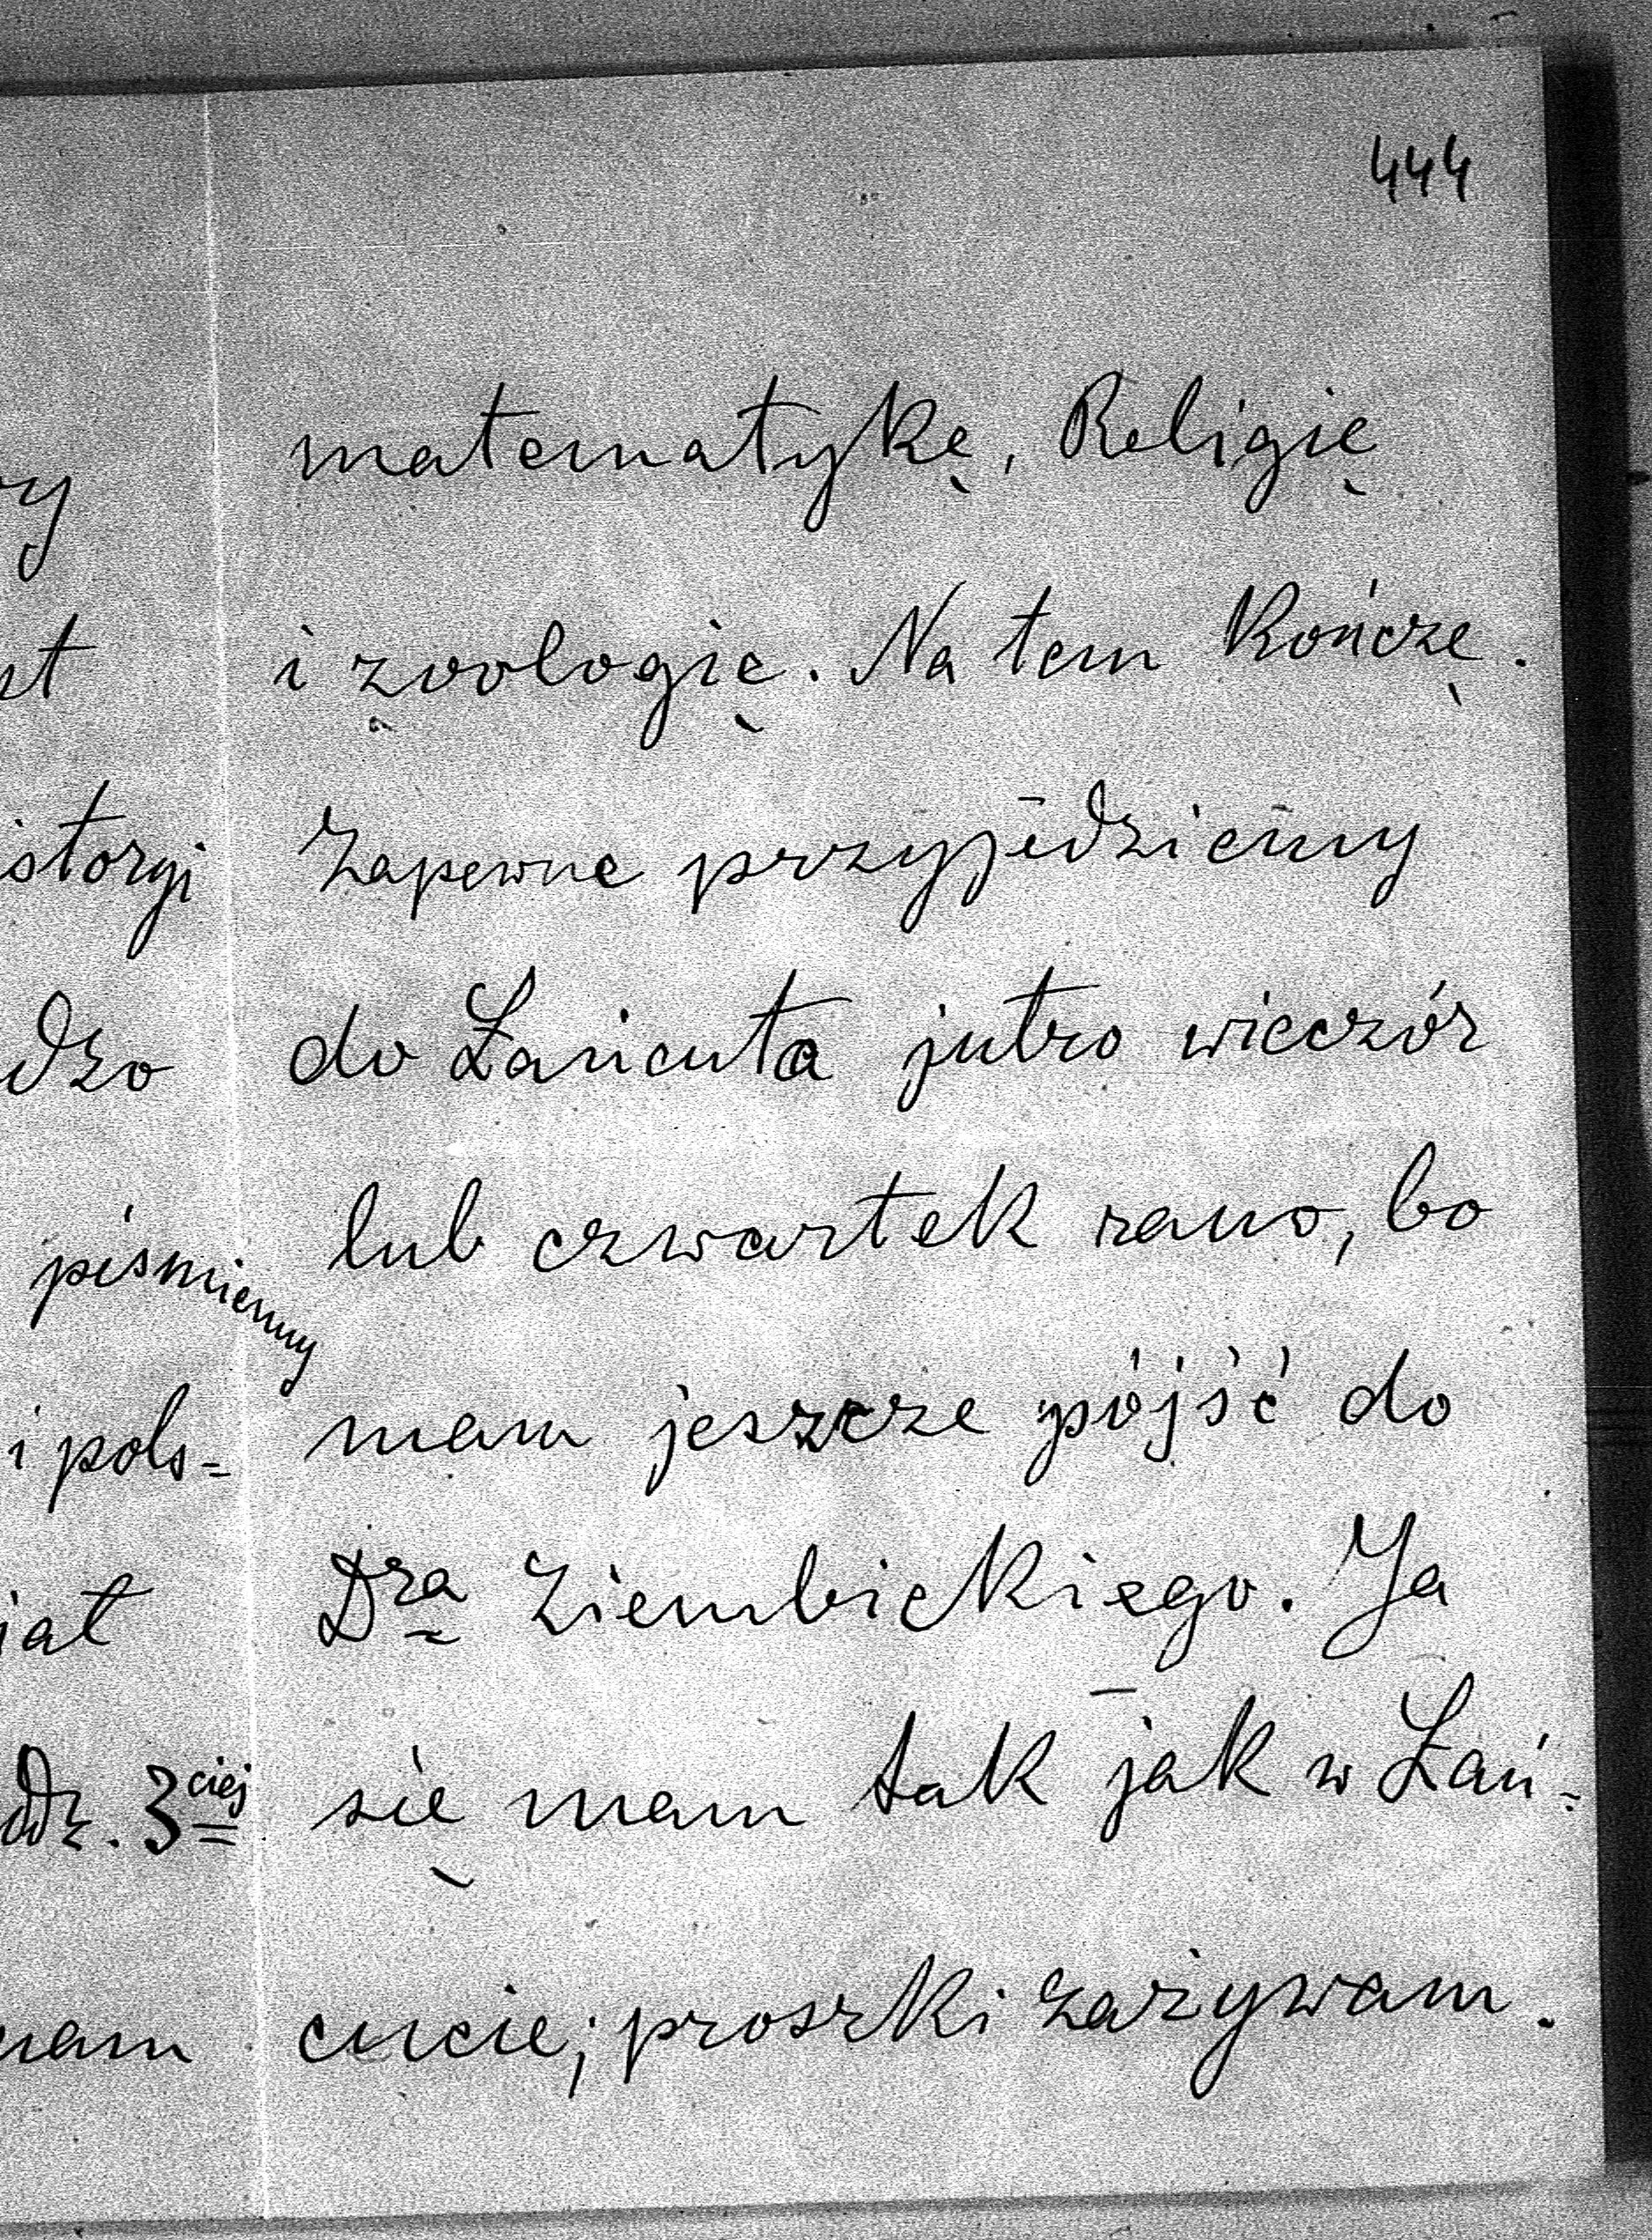 444
matematykę, Religię
i zoologię. Na tem kończę.
Zapewne przyjedziemy
do Łańcuta jutro wieczór
lub czwartek rano, bo
mam jeszcze pójść do
Dra Ziembickiego. Ja
się mam tak jak w Łań=
cucie; proszki zażywam.
piśmienny
i pols=
3ciej